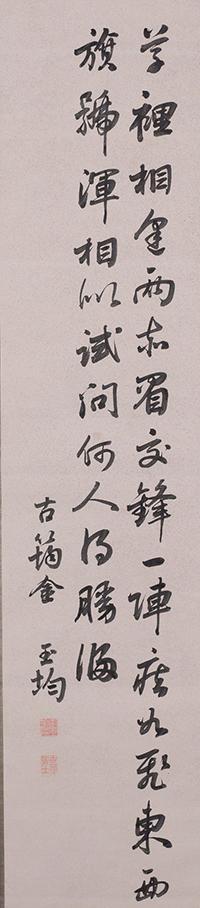 草裡相逢兩赤眉交鋒一陣疾如飛東西
旗號渾相似試問何人得勝歸
古筠金 玉均